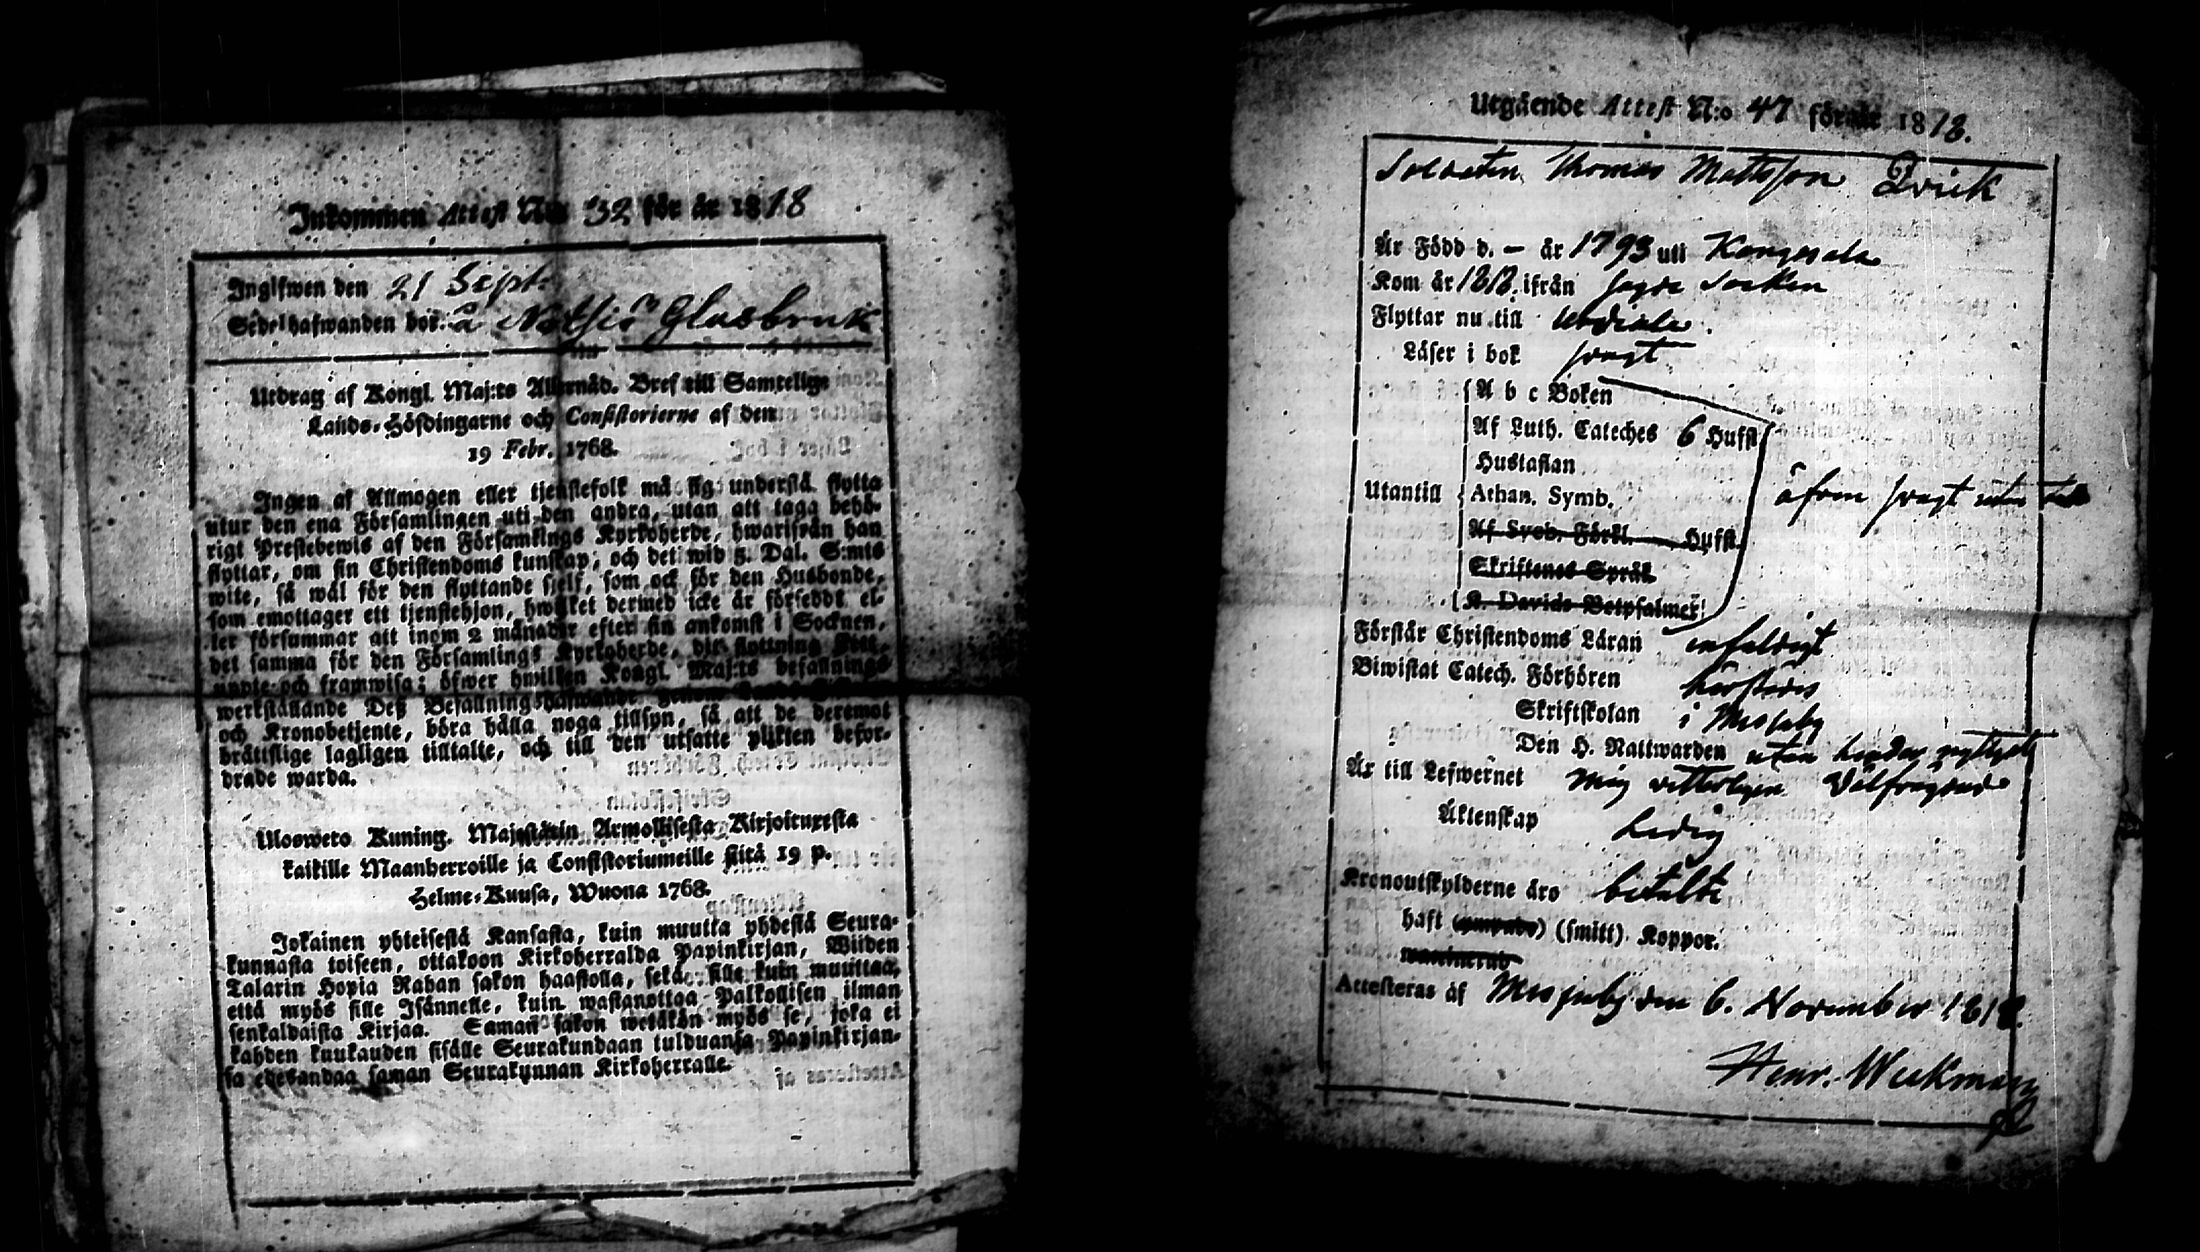 Inkommen Attest N:o 32 för år 1818
Inglfwen den 21 Sept.
Sedelhafwanden bor. å Notsiö Glasbruk
Utdrag af Kongl. Maj:ts Allernåd. Bref till Samtelige
Lands-Höfdingarne och Consistorierne af den
19 Febr. 1768.
Ingen af Allmogen eller tjenstefolk må sig understå flytta
utur den ena Församlingen uti den andra, utan att taga behö-
rigt Prestebewis af den Församlings Kyrkoherde, hwarifrån han
flyttar, om sin Christendoms kunskap; och det wid 5. Dal. S:mts
wite, så wäl för den flyttande sjelf, som ock för den Husbonde,
som emottager ett tjenstehjon, hwilket dermed icke är försedt el-
ler försummar att inom 2 månader efter sin ankomst i Socknen,
det samma för den Församlings Kyrkoherde, dit flyttning
uppte och framwisa; öfwer hwilken Kongl. Maj:ts befallnings
werkställande Deß Befallningshafwande
och Kronobetjente, böra hålla noga tillsyn, så att de deremot
bråttslige lagligen tilltalte, och till den utsatte plikten befor-
drade warda.
Ulosweto Kuning. Majestätin Armollisesta Kirjoituxesta
kaikille Maanherroille ja Consistoriumeille siitä 19 p.
Helme-Kuusa, Wuona 1768.
Jokainen yhteisestä Kansasta, kuin muutta yhdestä Seura-
kunnasta toiseen, ottakoon Kirkoherralda Papinkirjan, Wiiden
Talarin Hopia Rahan sakon haastolla, sekä sille kuin muuttaa,
että myös sille Isännelle, kuin wastanottaa Palkollisen ilman
senkaldaista Kirjaa. Saman sakon wetäkön myös se, joka ei
kahden kuukauden sisälle Seurakundaan tulduansa Papinkirjan-
sa edesandaa saman Seurakunnan Kirkoherralle.
Utgående Attest N:o 47 för år 1818.
Soldaten Thomas Mattsson Qvick
Är Född d. – år 1793 uti Kangasala
Kom år 1818. ifrån sagde Socken
Flyttar nu till Urdiala.
Läser i bok svagt
A b c Boken
Af Luth. Cateches 6 Hufst.
Hustaflan
Utantill Athan. Symb. äfven svagt utan
Af Sveb. Förkl. Hufst.
Skriftenes Språk
K. Davids Botpsalmer
Förstår Christendoms Läran enfaldigt
Biwistat Catech. Förhören härstädes
Skriftskolan i Messuby
Den H. Nattwarden utan hinder nyttjat
Är till Lefwernet mig vetterligen Välfrägdad
Äktenskap Ledig
Kronoutskylderne äro betalte
haft (ympade) (smitt) Koppor.
Attesteras af Messuby den 6. November 1818.
Henr. Weckman